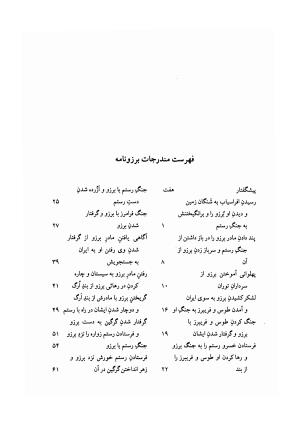 فهرست مندرجات برزونامه
پیشگفتار هفت
رسیدن افراسیاب به شنگان زمین
و دیدن او بُرزو را و برانگیختنش
به جنگِ رستم ۱
پند دادنِ مادر برزو را در باز داشتن از
جنگِ رستم و سرباز زدنِ برزو از
آن ۸
پهلوانی آموختن برزو از
سردارانِ توران ۱۰
لشکر کشیدنِ برزو به سوی ایران
و آمدن طوس و فریبرز به جنگِ او ۱۶
جنگ کردنِ طوس و فریبرز با
برزو و گرفتار شدنِ ایشان ۱۹
فرستادن خسرو رستم را به جنگ برزو
و رها کردن او طوس و فریبرز را
از بند ۲۲
جنگِ رستم با برزو و آزُرده شدنِ
دستِ رستم ۲۵
جنگ فرامرز با برزو و گرفتار
شدنِ برزو ۲۷
آگاهی یافتنِ مادرِ برزو از گرفتار
شدنِ وی رفتنِ او به ایران
به جستجویش ۳۹
رفتنِ مادرِ برزو به سیستان و چاره
کردن در رهائی برزو از بندِ اَرگ ۴۱
گریختنِ برزو با مادرش از بندِ اَرگ
و دوچار شدنِ ایشان در راه با رستم ۴۹
گرفتار شدنِ گرگین به دست برزو
و فرستادنِ رستم زواره را نزدِ برزو ۵۱
جنگ رستم با برزو ۵۴
فرستادنِ رستم خورش نزد برزو و
زهر انداختنِ گرگین در آن ۶۱